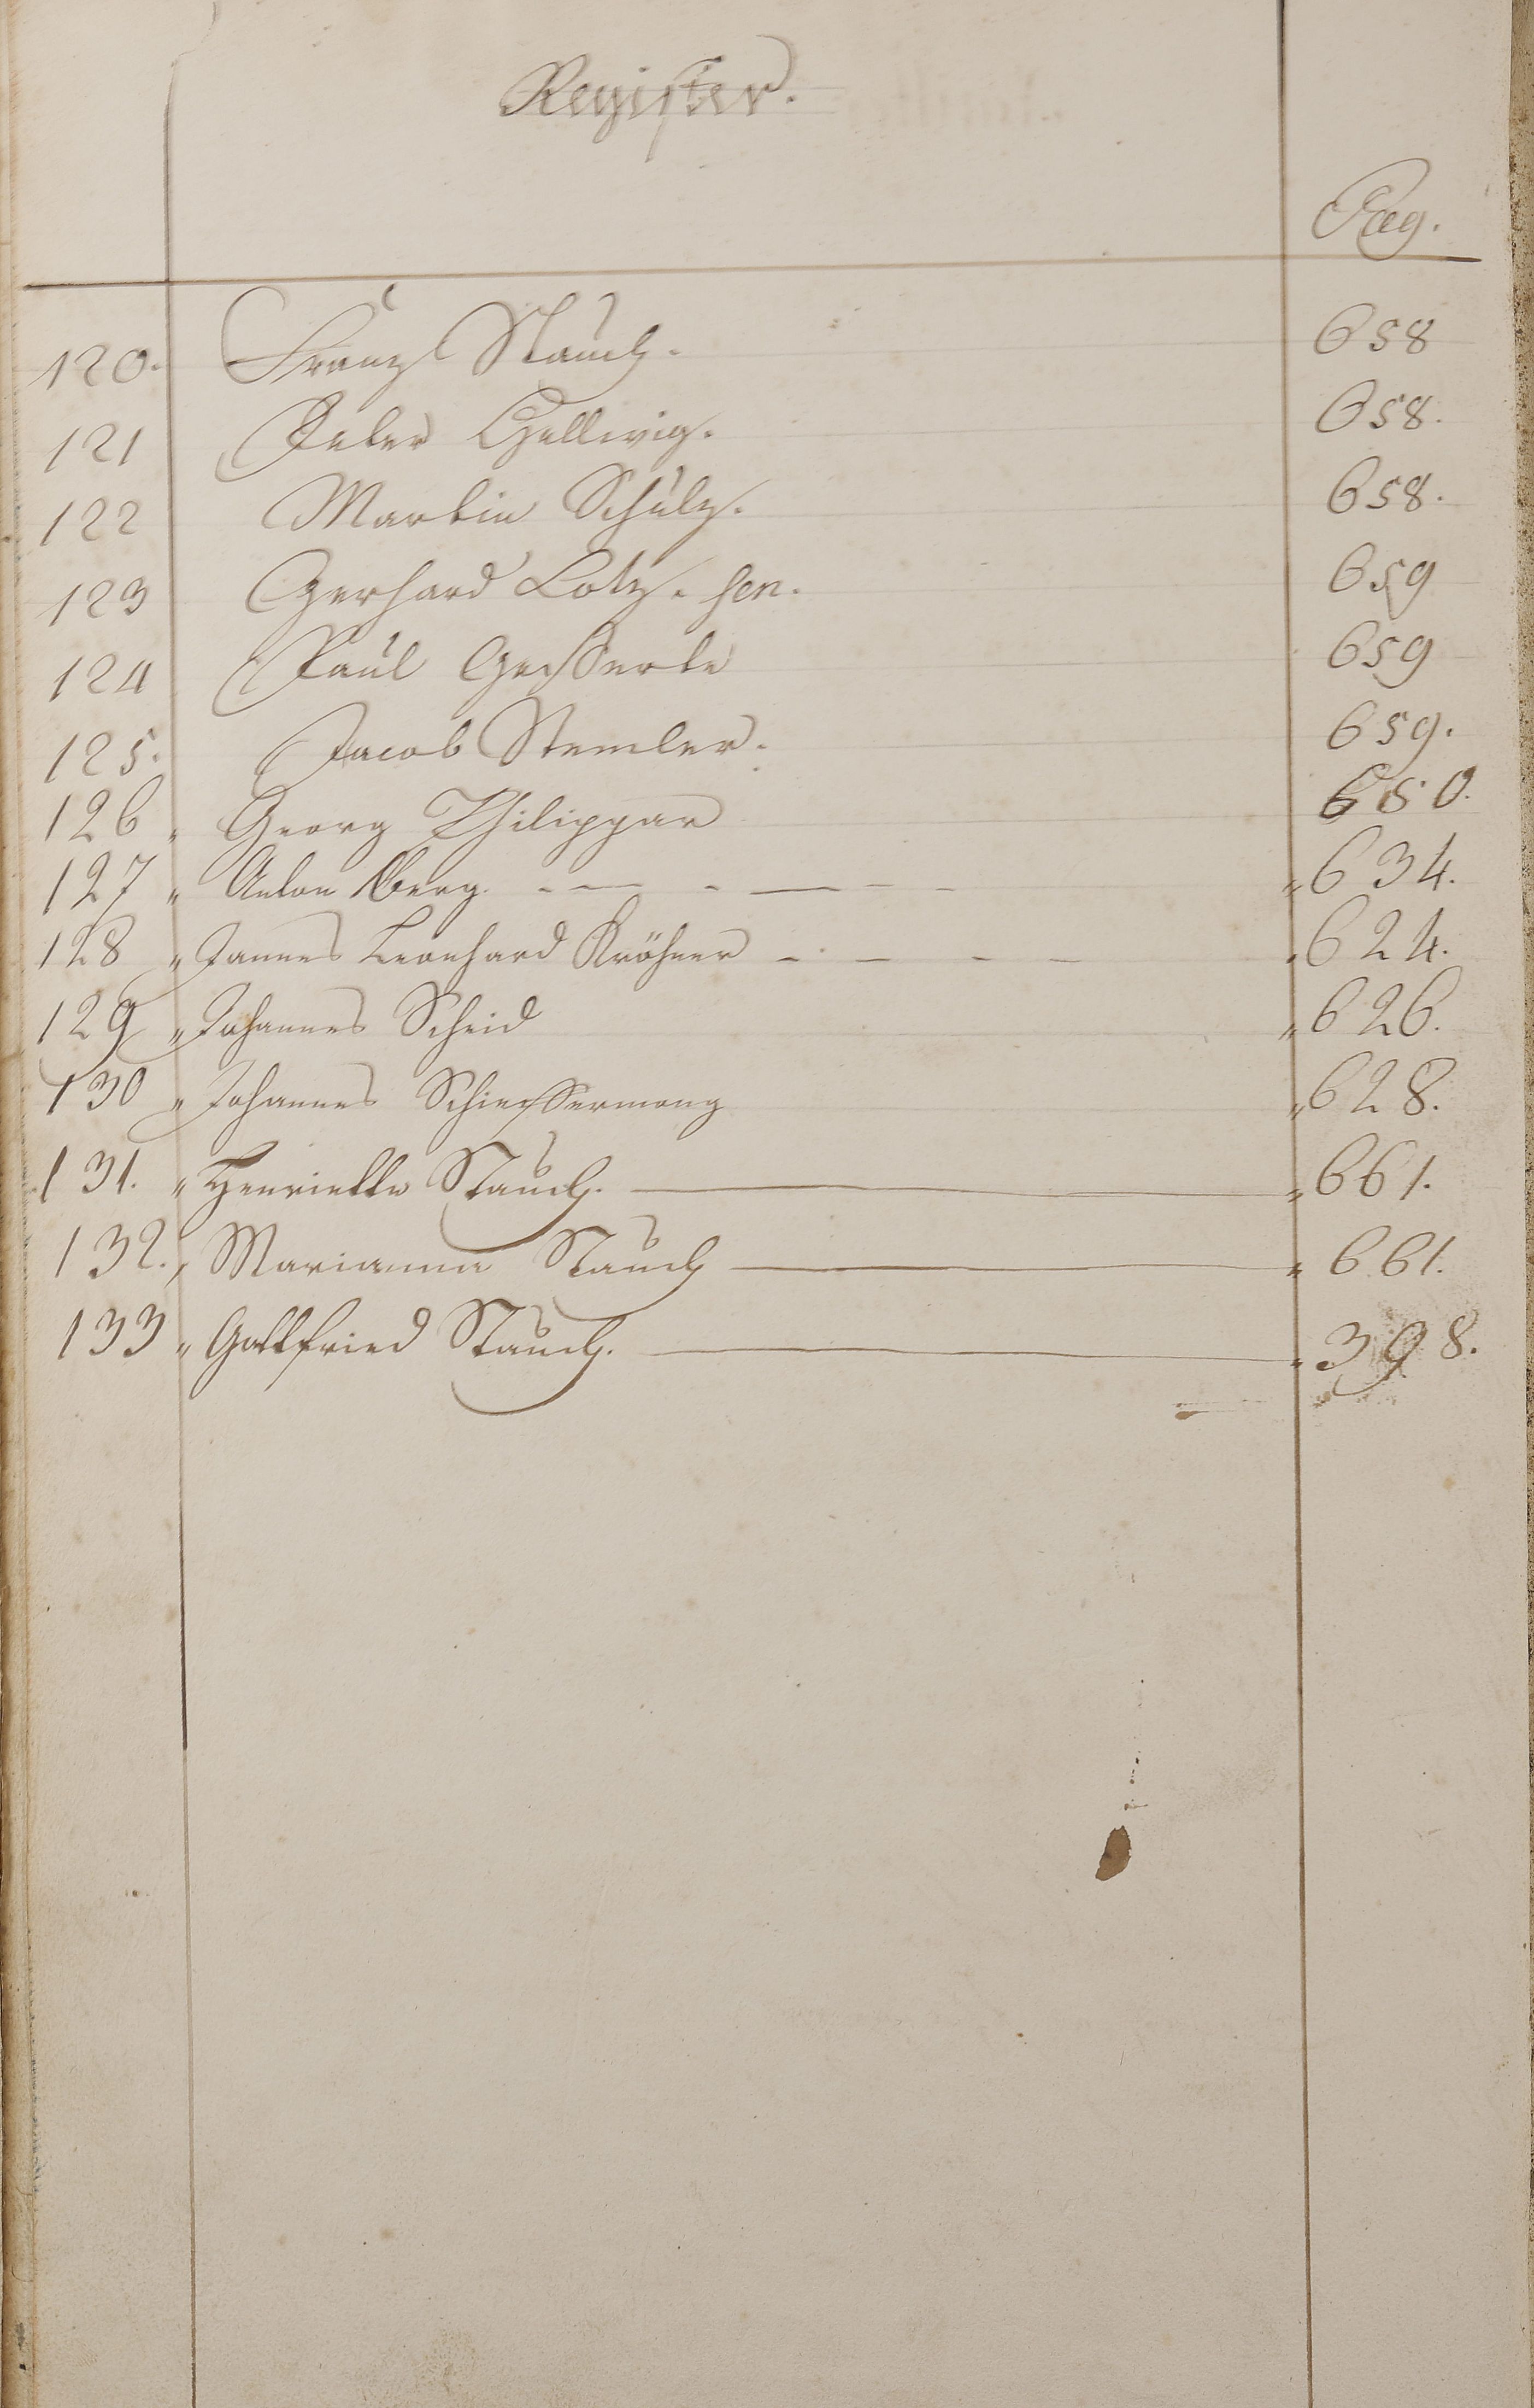 Register.
Pag.
120. Franz Stauch. 658
121 Peter Hellwig. 658.
122 Martin Schulz. 658.
123 Gerhard Lotz. sen. 659
124 Paul 659
125. Jacob Stemler. 659.
126 " Georg Philippar 650.
127 " Anton Berg. - — - — - - " 634.
128 " Jannes Leonhard Kröhner - - - - " 624.
129 " Johannes Scheid " 626.
130 " Johannes Schiessermong " 628.
131. " Henriette Stauch. — " 661.
132. " Marianna Stauch — " 661.
133 " Gottfried Stauch. — " 398.